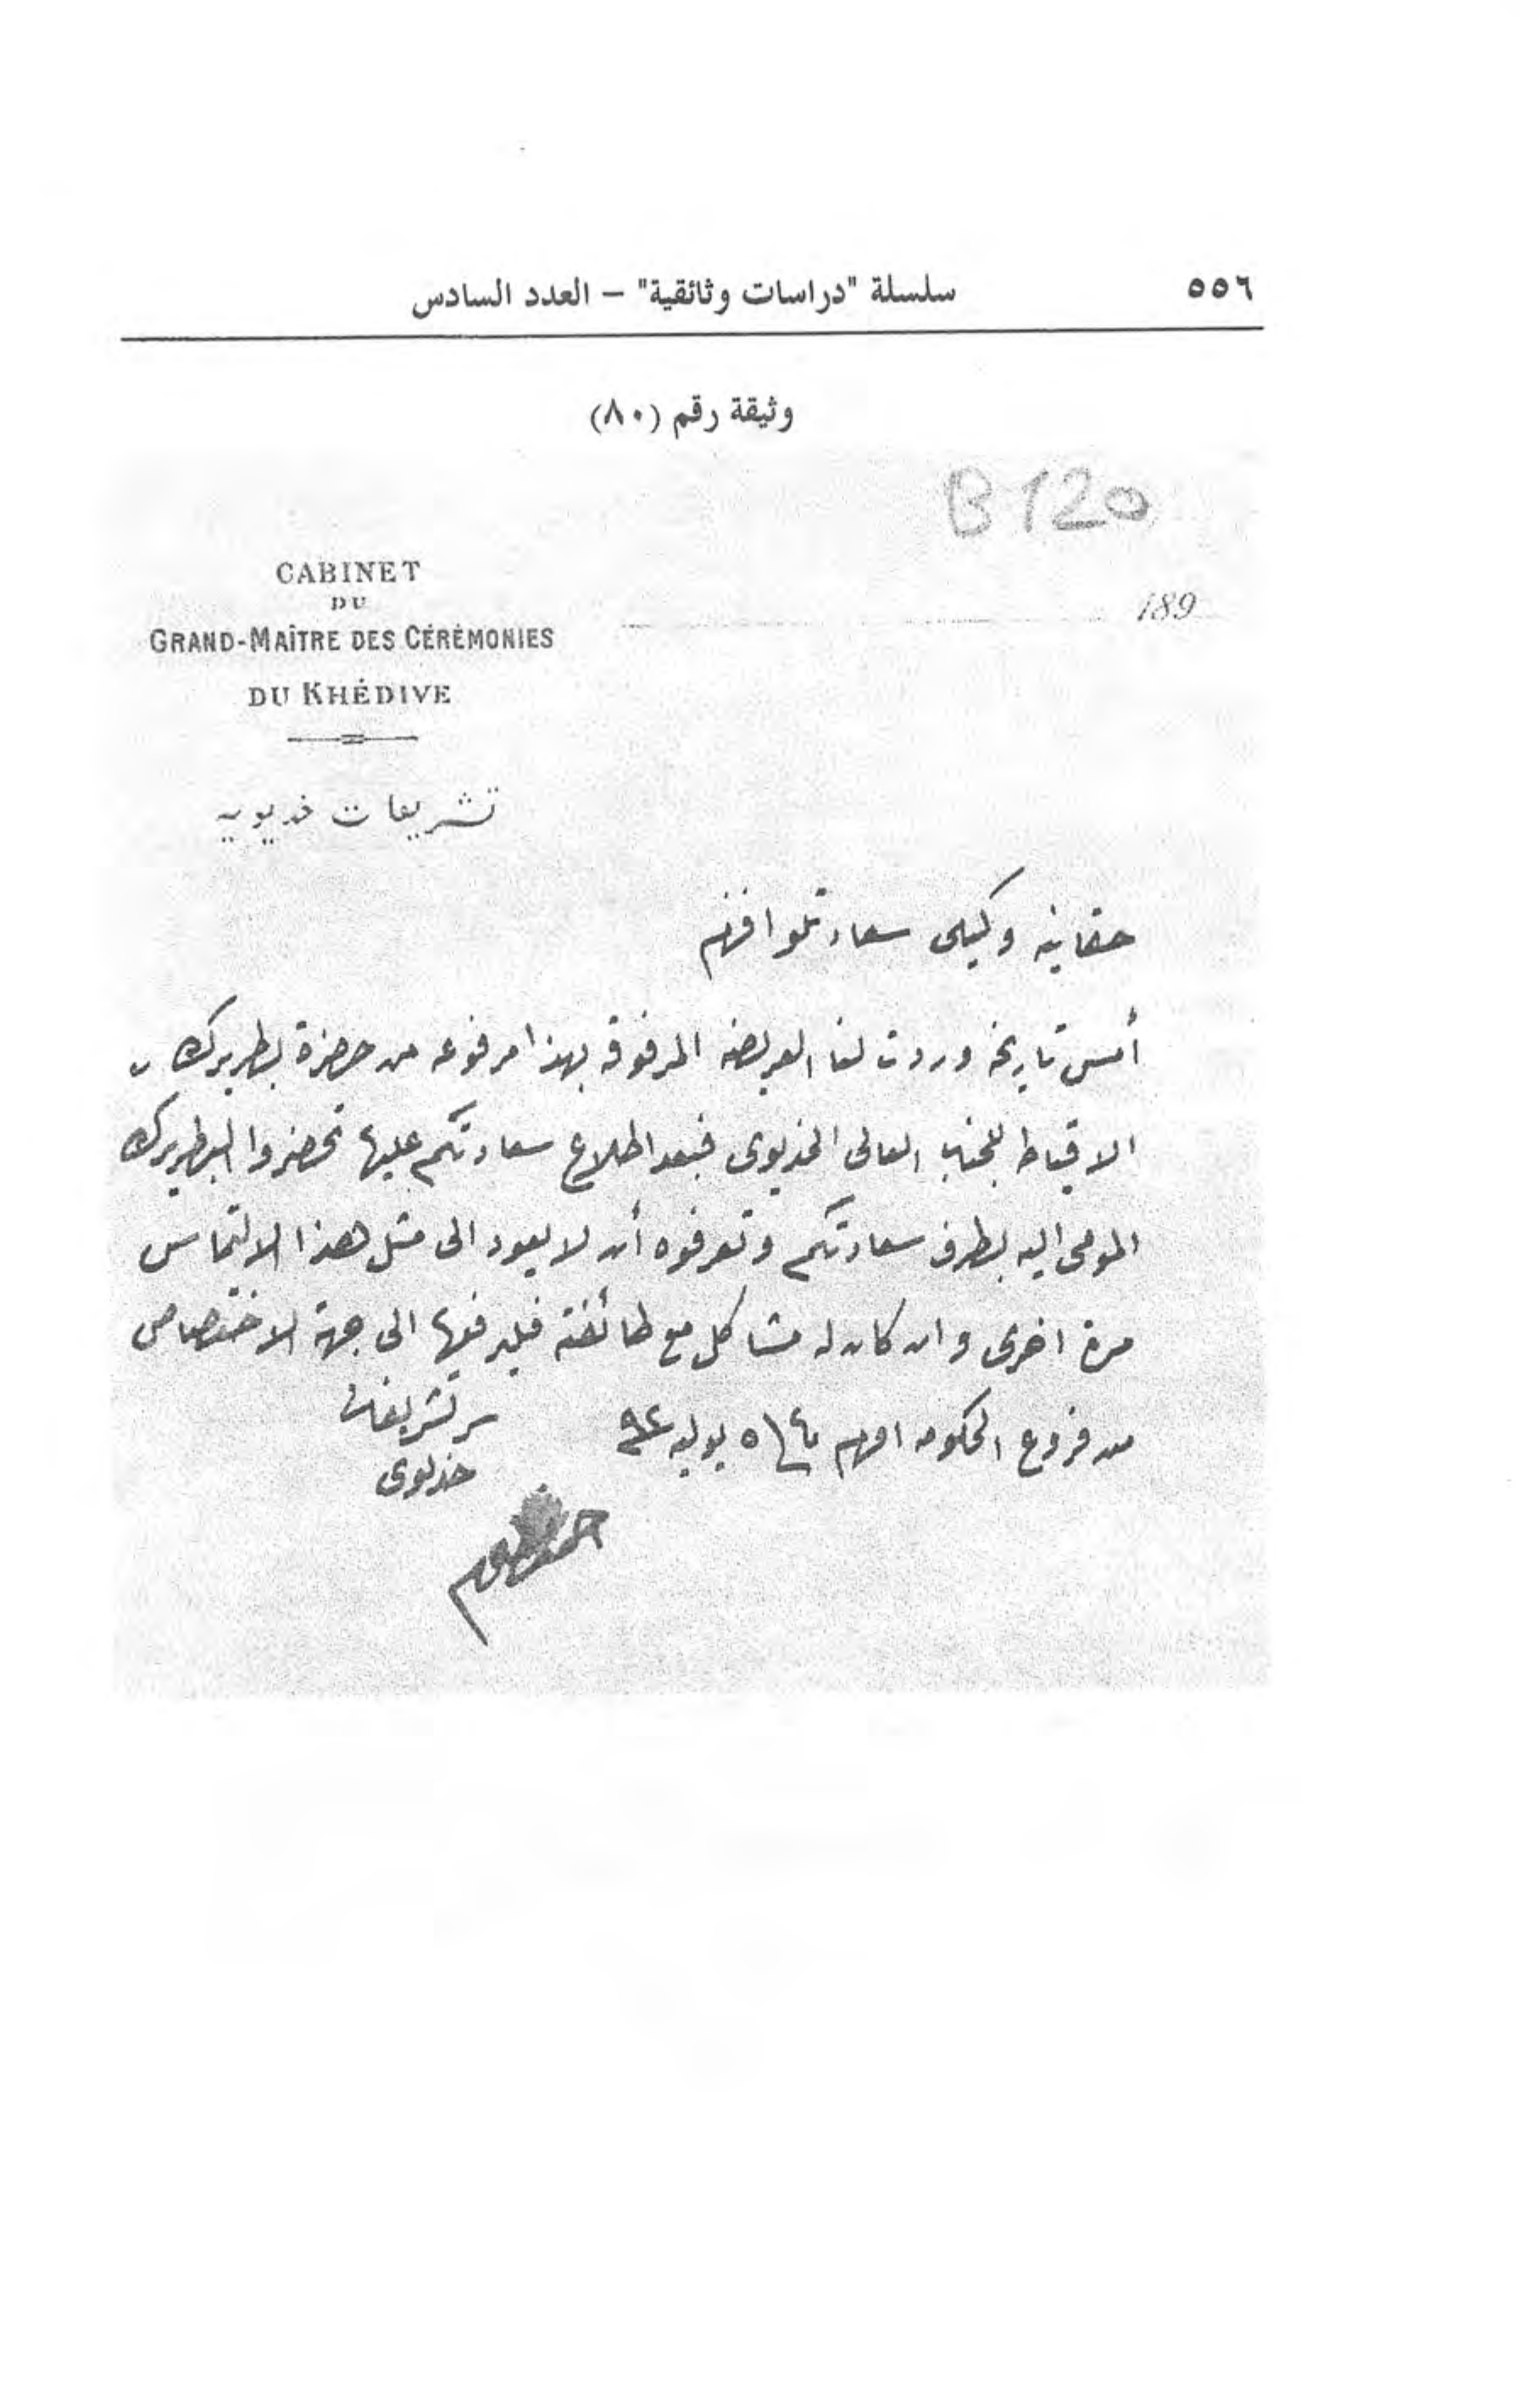 ٥٥٦
سلسلة "دراسات وثائقية" – العدد السادس
وثيقة رقم (٨٠)
B 120
CABINET
DU
GRAND-MAÎTRE DES CÉRÉMONIES
DU KHÉDIVE
189
تشريفات خديويه
حقانيه وكيلى سعادتلو افندم
أمس تاريخه وردت لنا العريضه المرفوقه بهذا مرفوعه من حضرة بطريرك
الاقباط للجناب العالى الخديوى فبعد اطلاع سعادتكم عليها تحضروا البطريرك
المومى اليه بطرف سعادتكم وتعرفوه أن لا يعود الى مثل هذا الالتماس
مرة اخرى وان كان له مشاكل مع طائفته فليرفعها الى جهة الاختصاص
من فروع الحكومه افندم يوليه
سر تشريفات
خديوى